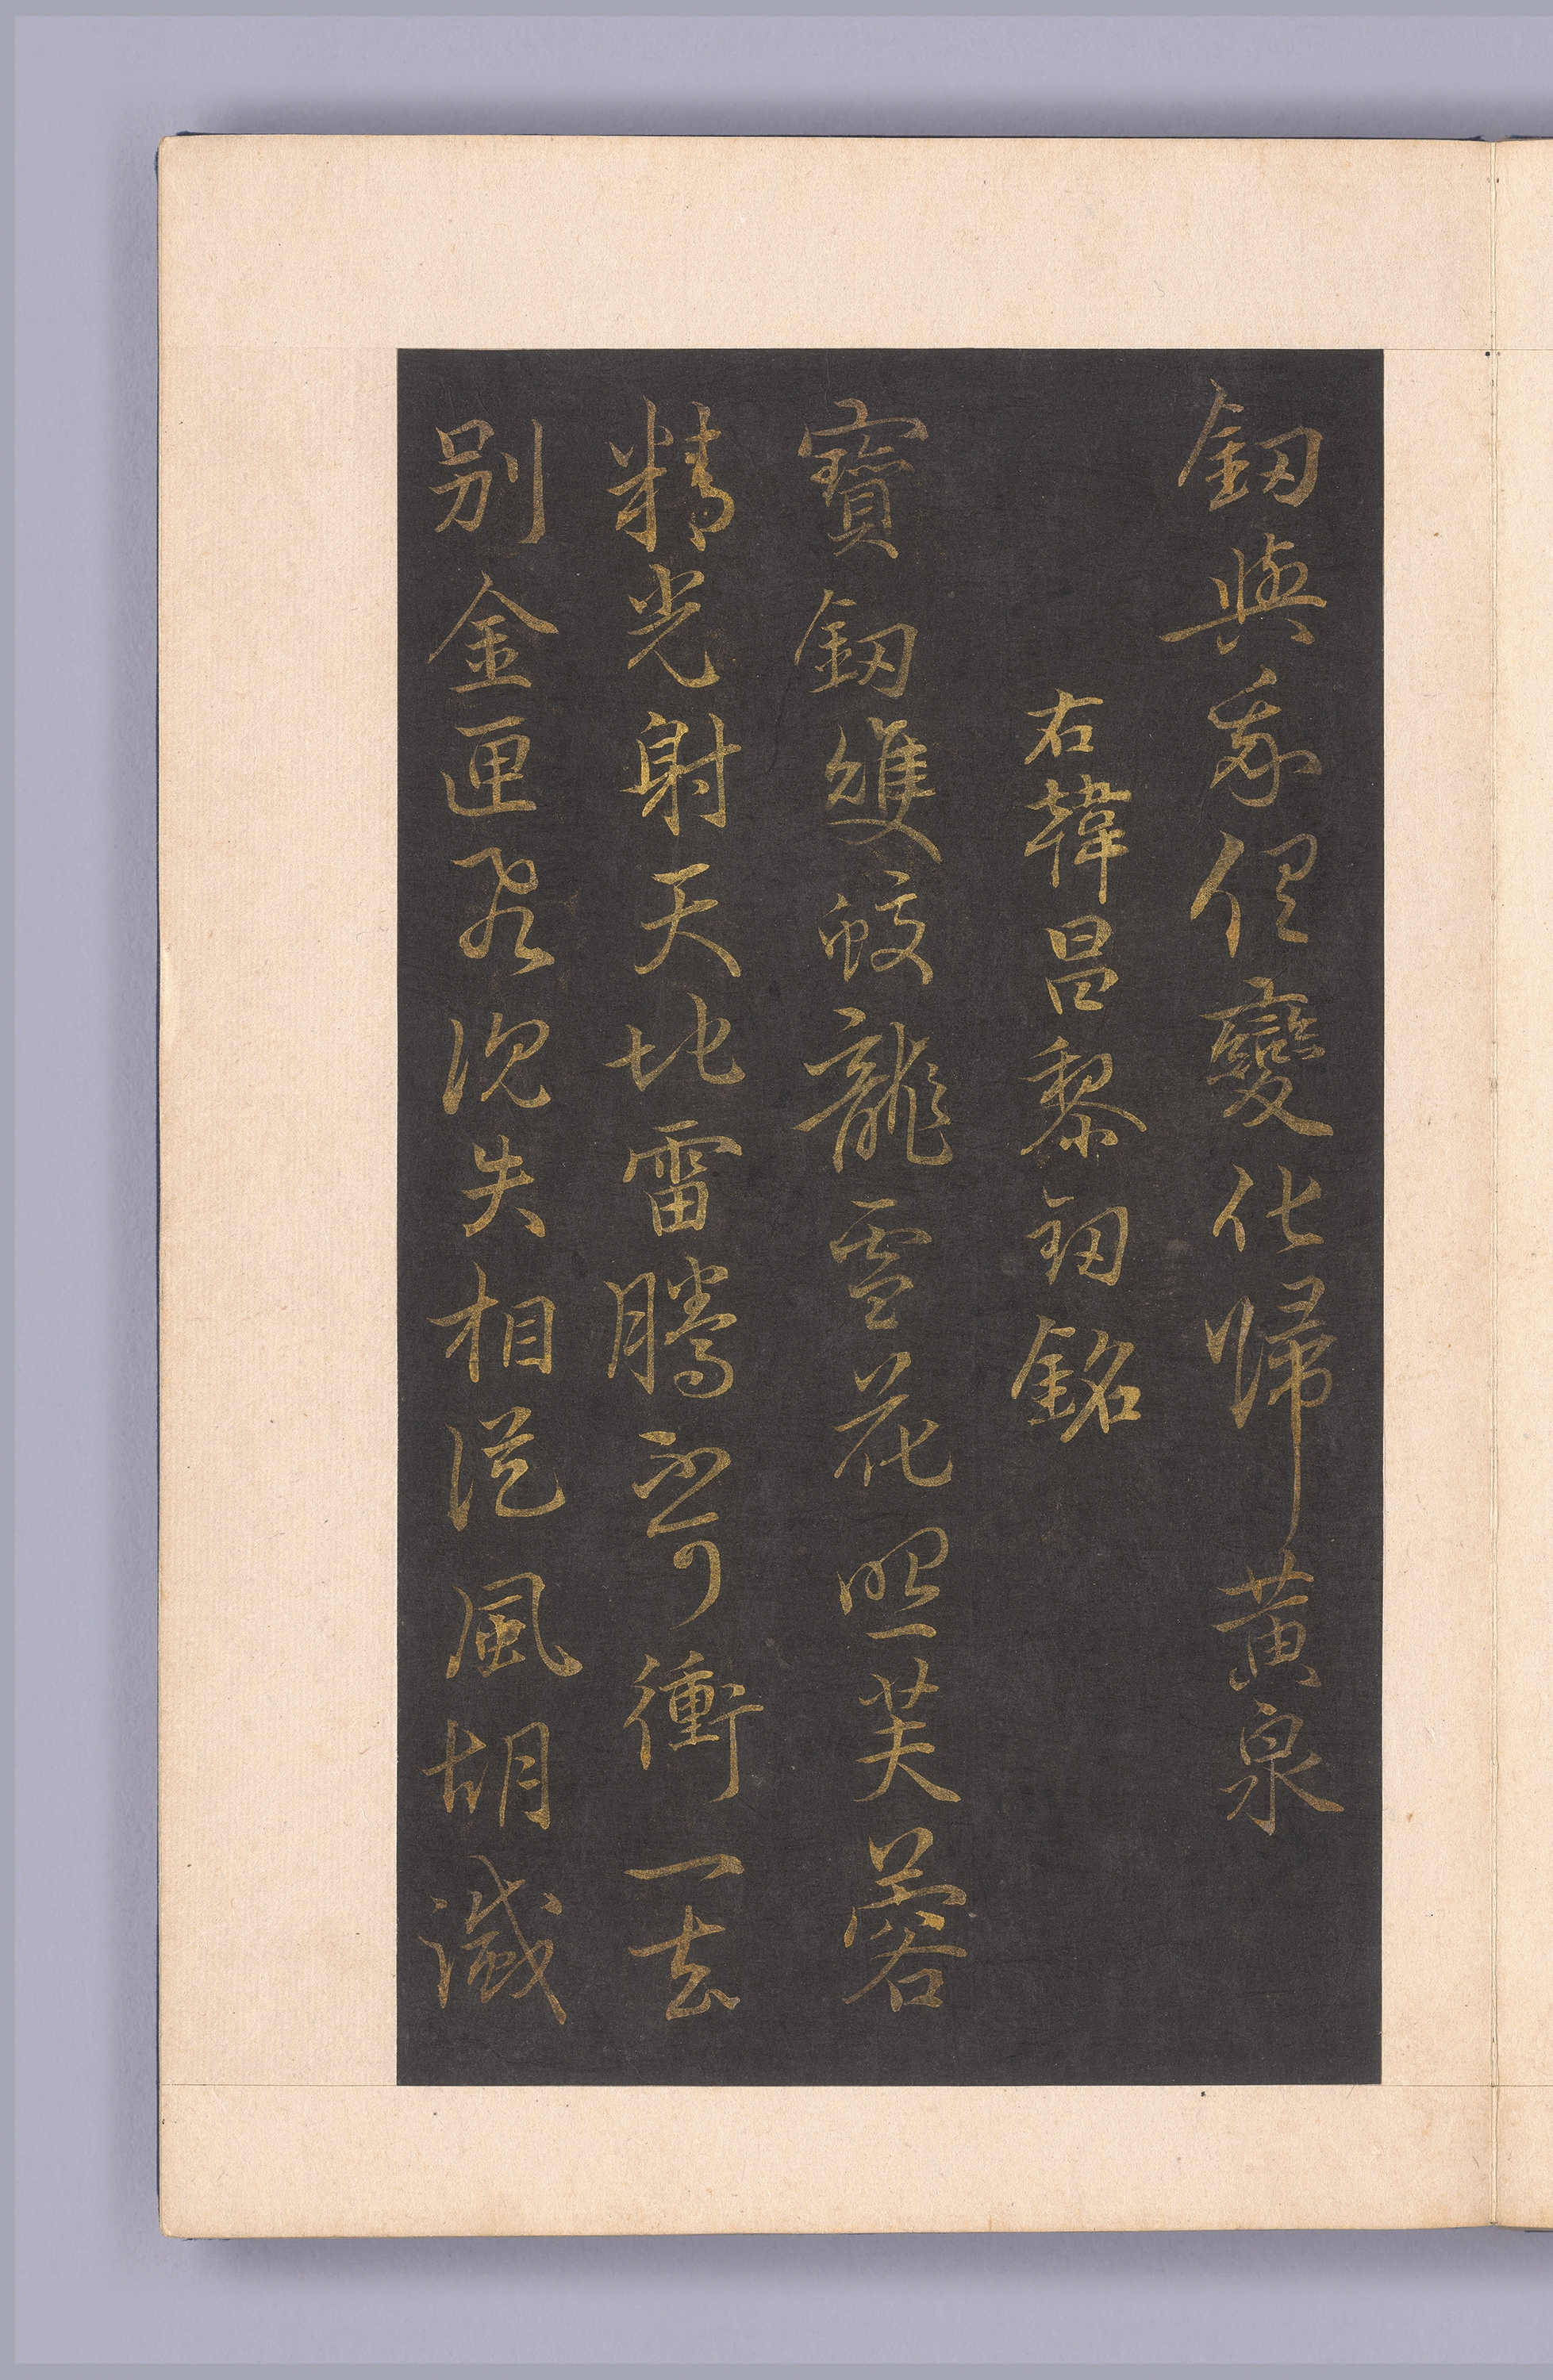 釼與我俱變化歸黃泉
右韓昌黎釼銘
寶釼雙蛟龍雪花照芙蓉
精光射天地雷騰不可衝一去
別金匣飛沉失相從風胡滅